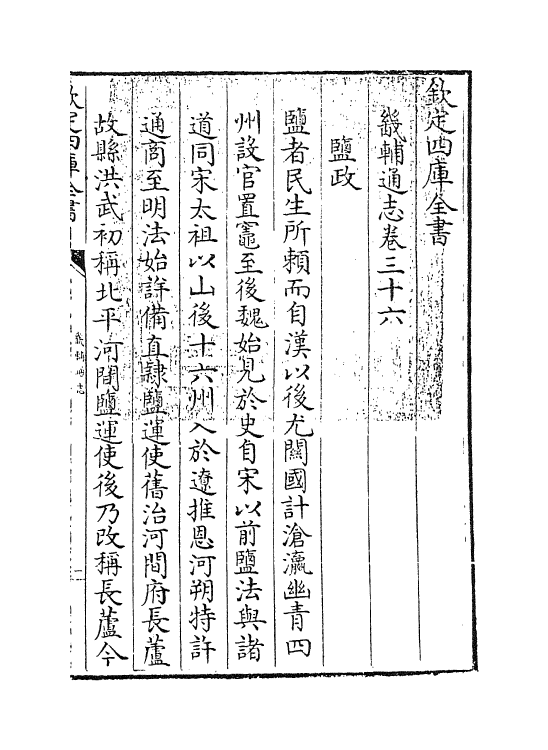 欽定四庫全書
畿輔通志卷三十六
鹽政
鹽者民生所賴而自漢以後尤關國計滄瀛幽青四
州設官置竈至後魏始見於史自宋以前鹽法與諸
道同宋太祖以山後十六州入於遼推恩河朔特許
通商至明法始詳備直隷鹽運使舊治河間府長蘆
故縣洪武初稱北平河間鹽運使後乃改稱長蘆今
欽定四庫全書
畿輔通志